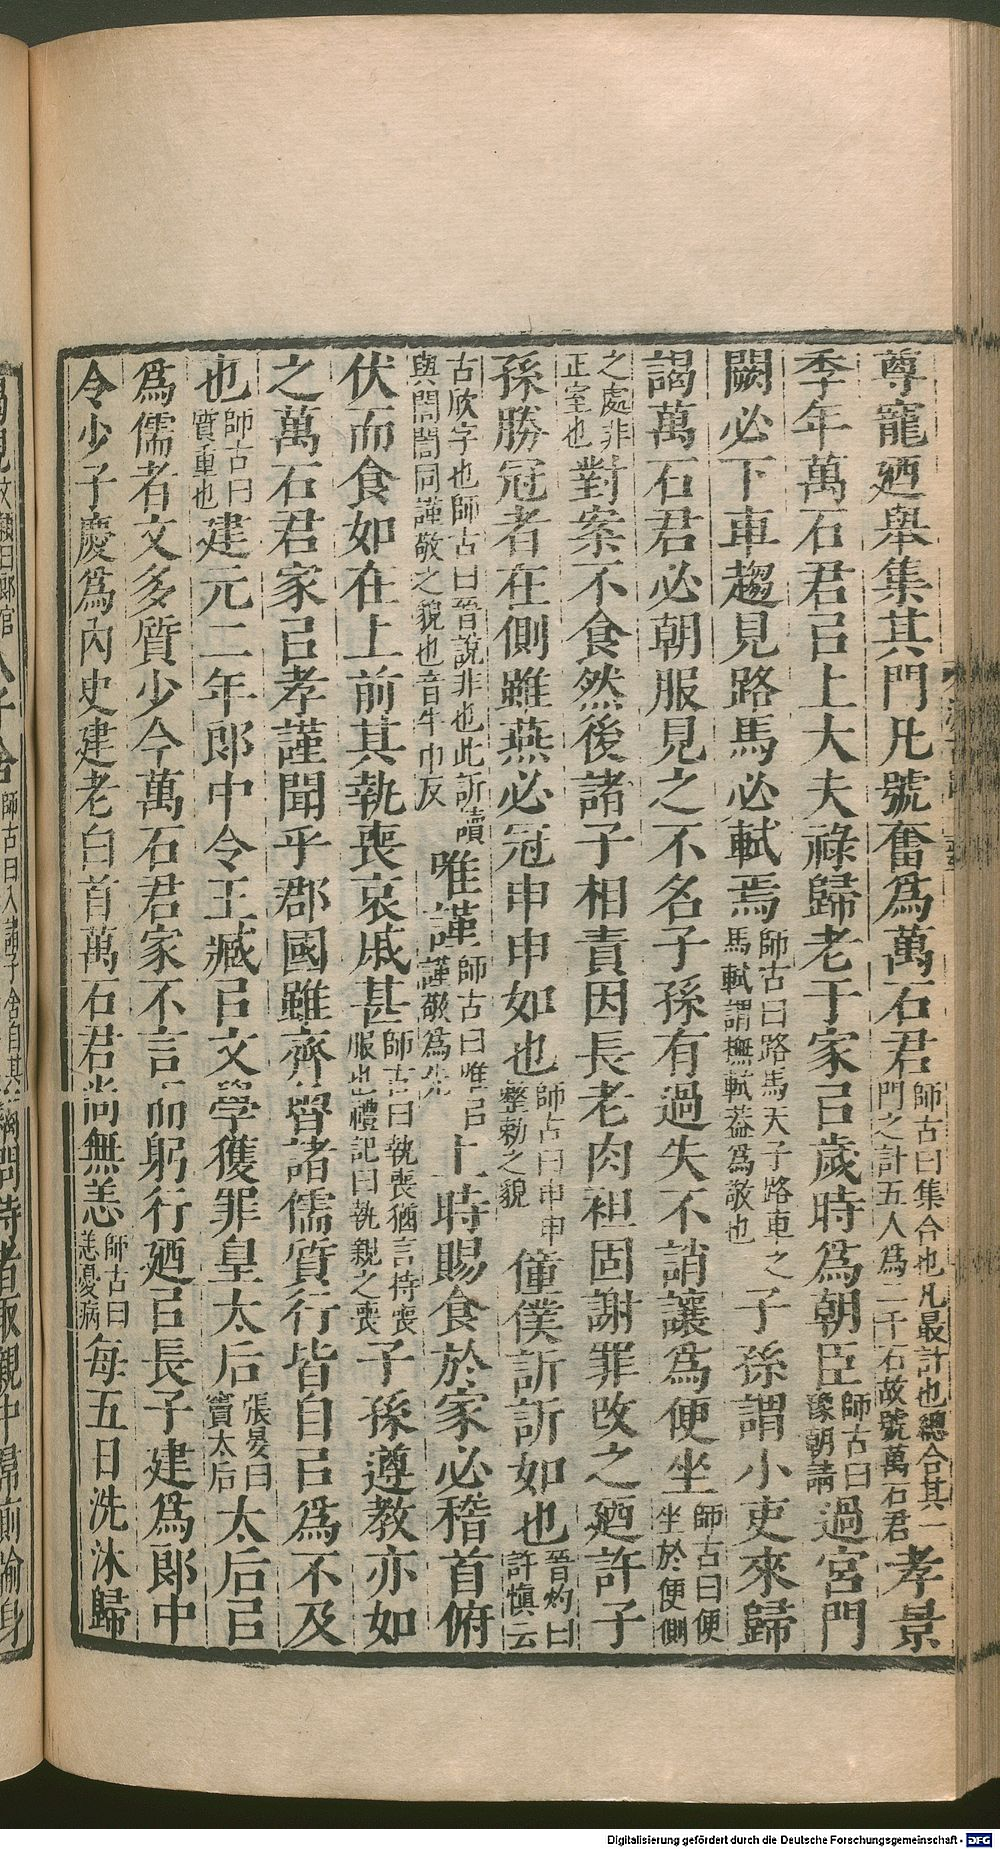 尊寵廼舉集其門凡號奮爲萬石君師古曰集合也凡最計也總合其一門之計五人爲二千石故號萬石君孝景
季年萬石君㠯上大夫祿歸老于家㠯歲時爲朝臣師古曰豫朝請過宮門
闕必下車趨見路馬必軾焉師古曰路馬天子路車之馬軾謂撫軾葢爲敬也子孫謂小吏來歸
謁萬石君必朝服見之不名子孫有過失不誚讓爲便坐師古曰便坐於便側
之處非正室也對案不食然後諸子相責因長老肉袒固謝罪改之廼許子
孫勝冠者在側雖燕必冠申申如也師古曰申申整勑之貌僮僕訢訢如也晉灼曰許愼云
古欣字也師古曰晉說非也此訢讀與誾誾同謹敬之貌也音牛巾反唯謹師古曰唯㠯謹敬爲先上時賜食於家必稽首俯
伏而食如在上前其執喪哀戚甚師古曰執喪猶言持喪服也禮記曰執親之喪子孫遵教亦如
之萬石君家㠯孝謹聞乎郡國雖齊魯諸儒質行皆自㠯爲不及
也師古曰質重也建元二年郎中令王臧㠯文學獲罪皇太后張晏曰竇太后太后㠯
爲儒者文多質少今萬石君家不言而躬行廼㠯長子建爲郎中
令少子慶爲內史建老白首萬石君尚無恙師古曰恙憂病每五日洗沐歸
Digitalisierung gefördert durch die Deutsche Forschungsgemeinschaft - DFG